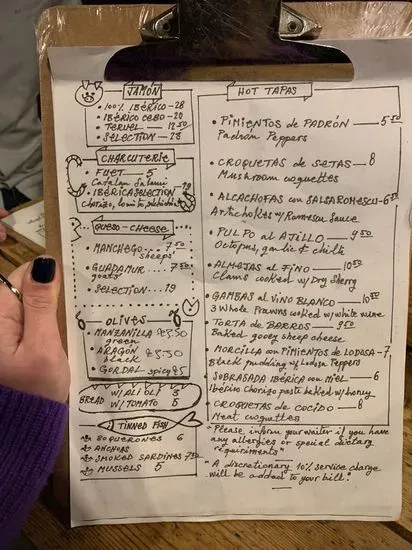 JAMÓN
• 100% IBÉRICO - 28
• IBÉRICO CEBO - 20
• TERUEL - 12.50
• SELECTION - 23
CHARCUTERIE
• FUET - 5
Catalan Salami
• IBÉRICA SELECTION 19
Chorizo, lomito, salchichón
QUESO - CHEESE
• MANCHEGO - 7.50
sheeps
• GUADAMUR - 7.50
goats
• SELECTION - 19
OLIVES
• MANZANILLA £5.50
green
• ARAGON £5.50
black
• GORDAL spicy £5
BREAD
W/ ALIOLI 3
W/ TOMATO 5
TINNED FISH
BOQUERONES 6
ANCHOAS
SMOKED SARDINES 7.50
MUSSELS 5
HOT TAPAS
• PIMIENTOS de PADRÓN - 5.50
Padrón Peppers
• CROQUETAS de SETAS - 8
Mushroom croquettes
• ALCACHOFAS con SALSA ROMESCU - 6.50
Artichokes w/ Romescu Sauce
• PULPO al AJILLO - 9.50
Octopus, garlic & chilli
• ALMEJAS al FINO - 10.50
Clams cooked w/ Dry Sherry
• GAMBAS al VINO BLANCO - 10.50
3 Whole Prawns cooked w/ white wine
• TORTA de BARROS - 9.50
Baked gooey sheep cheese
• MORCILLA con PIMIENTOS de LODOSA - 7
Black pudding w/ Lodosa Peppers
• SOBRASADA IBÉRICA con MIEL - 6
Ibérico Chorizo paste baked w/ honey
• CROQUETAS de COCIDO - 8
Meat croquettes
"Please inform your waiter if you have
any allergies or special dietary
requirements"
"A discretionary 10% service charge
will be added to your bill!